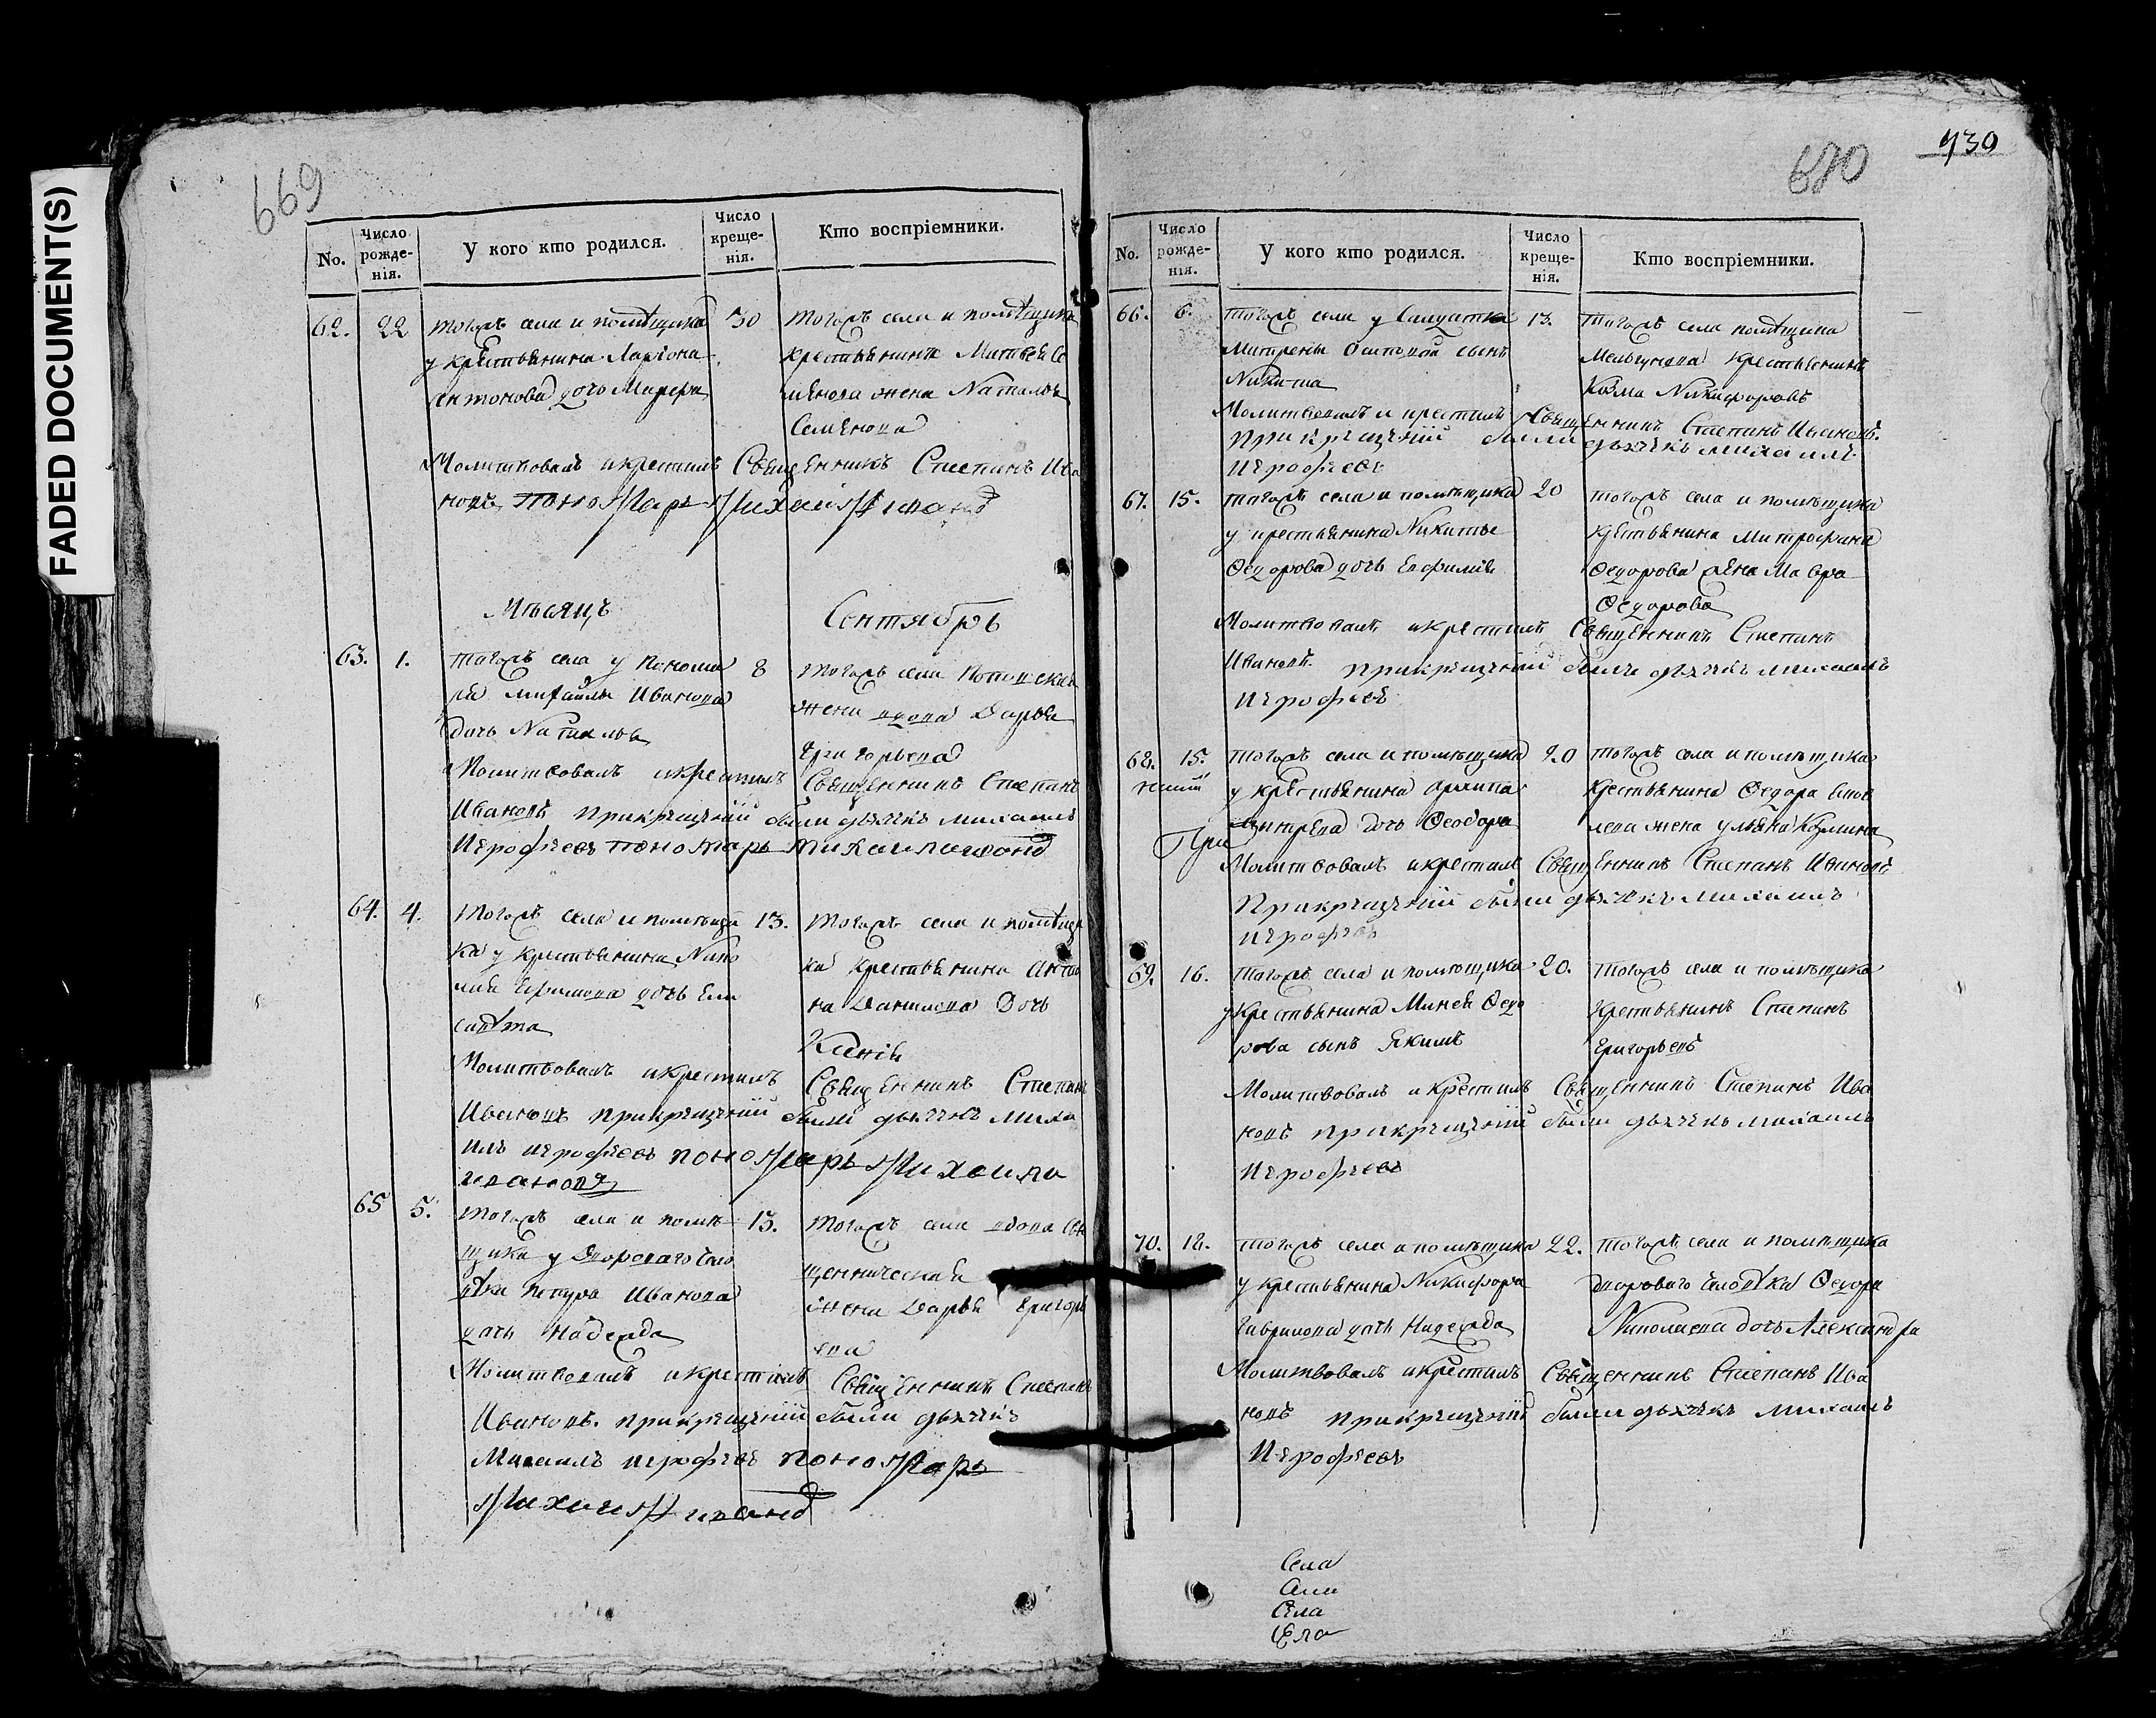 FADED DOCUMENT(S)
669
No.
Число рожде-нія.
У кого кто родился.
Число креще-нія.
Кто воспріемники.
62. 22
тогожъ села и помѣщика
у крестьянина Ларіона
Антонова дочь Марфа
30
тогожъ села и помѣщика
крестьянина Матвея Се
менова жена Наталья
Семенова
Молитвовалъ и крестилъ Священникъ Степанъ Ива
новъ пономарь Михаилъ Иванов
Мѣсяцъ Сентябрь
63. 1.
тогожъ села у понома
ря Михаилы Иванова
дочь Наталья
8
тогожъ села
жена вдова Дарья
Григорьева
Молитвовалъ и крестилъ Священникъ Степанъ
Ивановъ при крещеніи были дьячекъ михаилъ
Иерофеевъ пономарь михаила иванов
64. 4.
тогожъ села и помѣщи
ка у крестьянина Нико
лая дочь Ели
савѣта
13.
тогожъ села и помѣщи
ка крестьянина Анто
на Данилова Дочь
Ксенія
Молитвовалъ и крестилъ Священникъ Степанъ
Ивановъ при крещеніи были дьячекъ миха
илъ иерофеевъ пономарь михаила
иванов
65 5.
тогожъ села и помѣ
щика у Дворового чело
вѣка Петра Иванова
дочь Надежда
13.
тогожъ села вдова свя
щенническая
жена Дарья Григорь
ева
Молитвовалъ и крестилъ Священникъ Степанъ
Ивановъ. при крещеніи были дьячекъ
Михаилъ иерофеевъ пономарь
михаилъ иванов
680
930
No.
Число рожде-нія.
У кого кто родился.
Число креще-нія.
Кто воспріемники.
66. 6.
тогожъ села у Салдатки
Матрены сынъ
Никита
13.
тогожъ села помѣщика
крестьянинъ
Козма Никифоровъ
Молитвовалъ и крестилъ Священникъ Степанъ Ивановъ.
при крещеніи были дьячекъ михаилъ
Иерофеевъ
67. 15.
тогожъ села и помѣщика
у крестьянина Никиты
Федорова дочь Евфимія
20
тогожъ села и помѣщика
крестьянина Митрофана
Федорова жена Мавра
Федорова
Молитвовалъ и крестилъ Священникъ Степанъ
Ивановъ. при крещеніи были дьячекъ михаилъ
Иерофеевъ
68. 15.
тогожъ села и помѣщика
у крестьянина Архипа
дочь Феодора
20
тогожъ села и помѣщика
крестьянина Федора
жена Ульяна Козмина
При
Молитвовалъ и крестилъ Священникъ Степанъ Ивановъ
При крещеніи были дьячекъ михаилъ
иерофеевъ
69. 16.
тогожъ села и помѣщика
у крестьянина Минея Федо
рова сынъ Якимъ
20.
тогожъ села и помѣщика
крестьянинъ Степанъ
Григорьевъ
Молитвовалъ и крестилъ Священникъ Степанъ Ива
новъ при крещеніи были дьячекъ михаилъ
Иерофеевъ
70. 18.
тогожъ села и помѣщика
у крестьянина Никифора
Гаврилова дочь Надежда
22.
тогожъ села и помѣщика
дворового человѣка Федора
Николаева дочь Александра
Молитвовалъ и крестилъ Священникъ Степанъ Ива
новъ при крещеніи были дьячекъ михаилъ
Иерофеевъ
Села
Села
Села